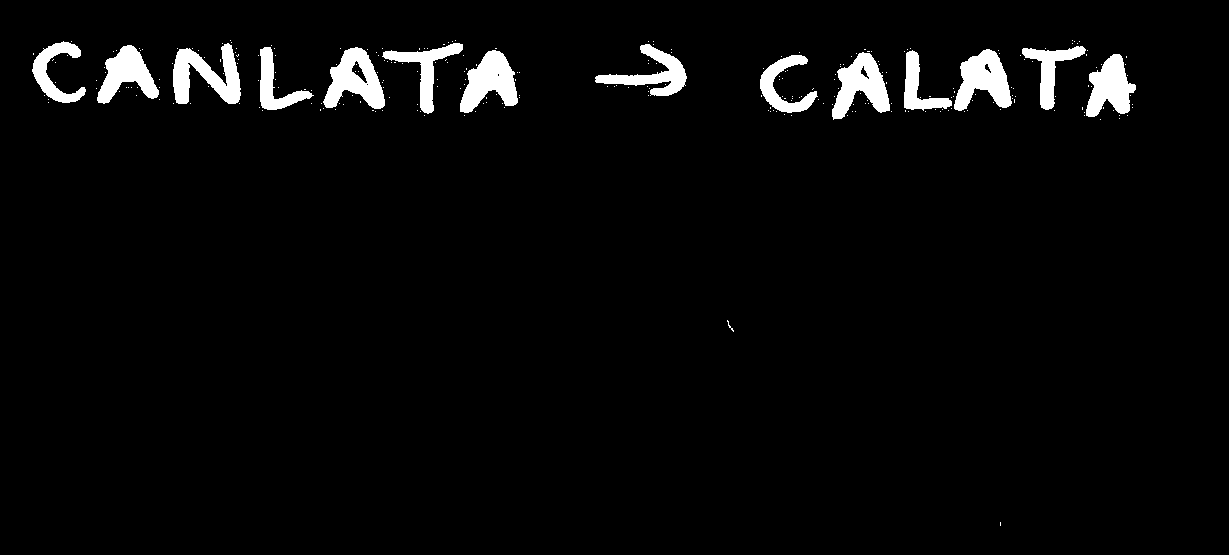 CANLATA → CALATA